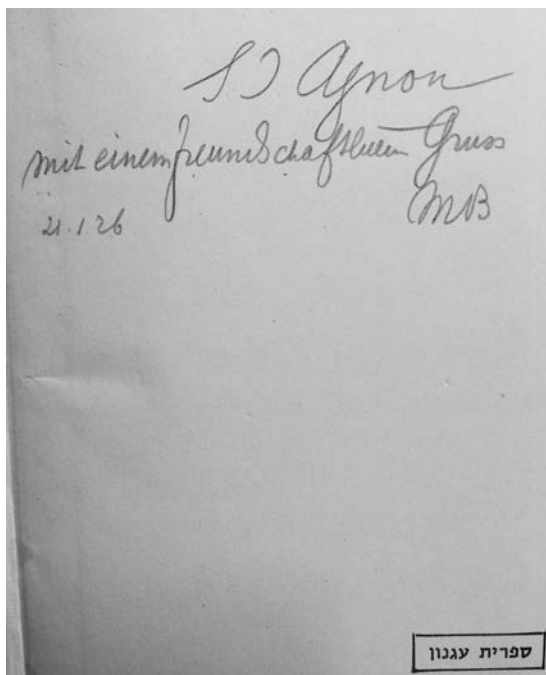 SJ Agnon
mit einem freundschaftlichen Gruss
MB
21.1.26
ספרית עגנון